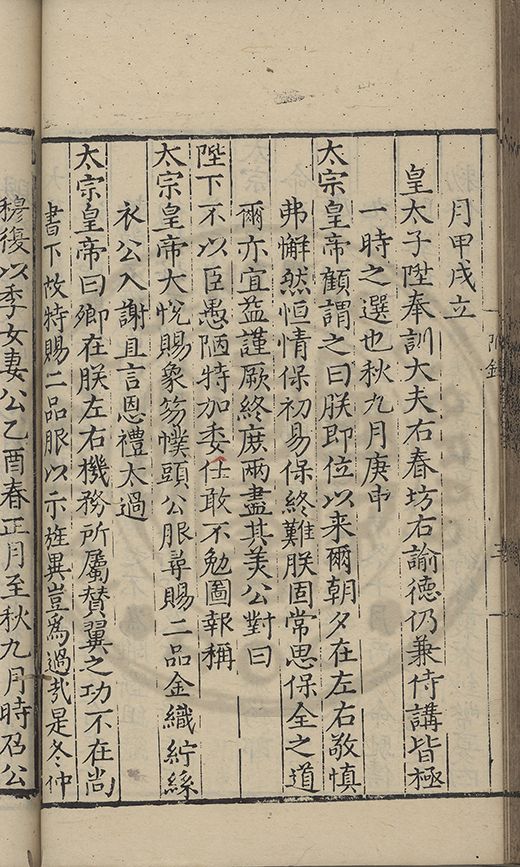 月甲戌立
皇太子陞奉訓大夫右春坊右諭德仍兼侍講皆極
一時之選也秋九月庚申
太宗皇帝顧謂之曰朕即位以来爾朝夕在左右敬慎
弗懈然恒情保初易保終難朕固常思保全之道
爾亦宜益謹厥終庶兩盡其羙公對曰
陛下不以臣愚陋特加委任敢不勉圖報稱
太宗皇帝大悅賜象笏幞頭公服尋賜二品金織紵絲
衣公入謝且言恩禮太過
太宗皇帝曰卿在朕左右機務所屬賛翼之功不在尚
書下故特賜二品服以示旌異豈爲過哉是冬仲
穆復以季女妻公乙酉春正月至秋九月時召公
附錄